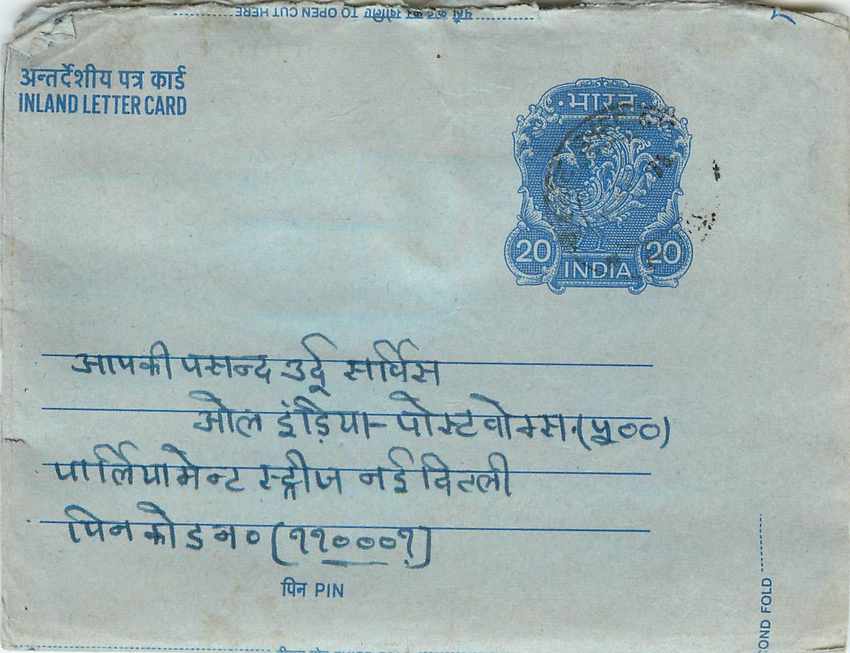 यहाँ काट कर खोलिए TO OPEN CUT HERE
अन्तर्देशीय पत्र कार्ड
INLAND LETTER CARD
भारत
20 20
INDIA
आपकी पसन्द उर्दू सर्विस
ओल इंड़िया-पोस्ट वोक्स.(५००)
पार्लियामेन्ट स्ट्रीज नई दिल्ली
पिन कोड न० (११०००१)
पिन PIN
OND FOLD